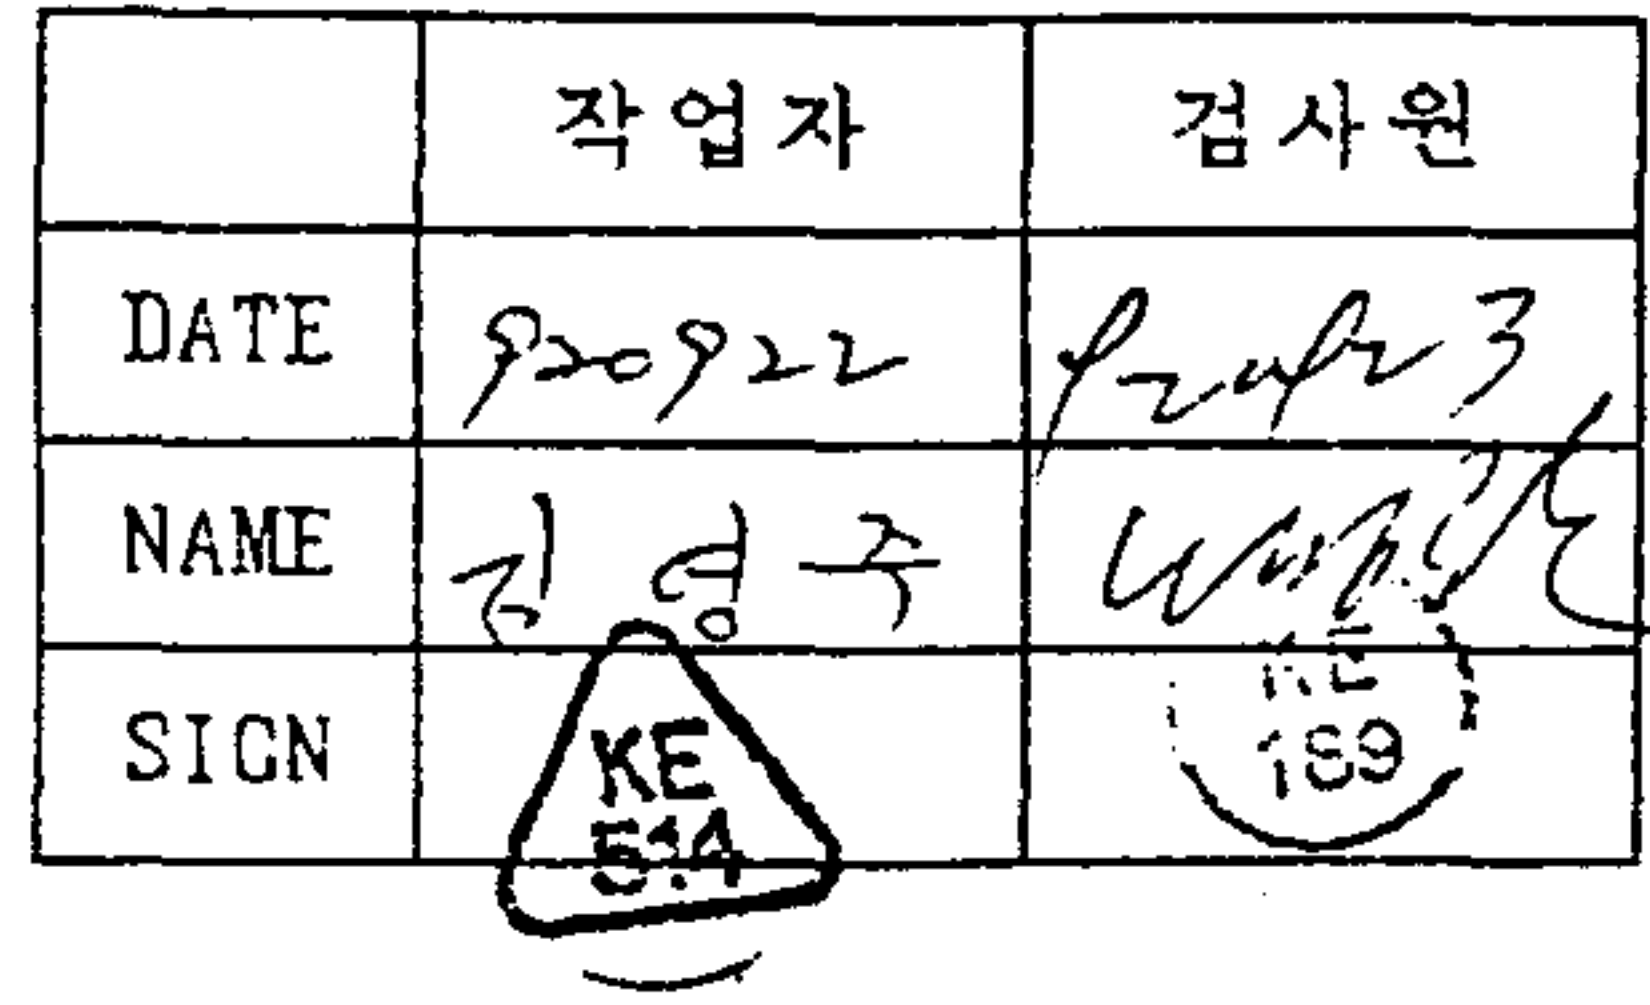 작업자 검사원
DATE 920922 920923
NAME 김영주
SIGN KE KE
514 189